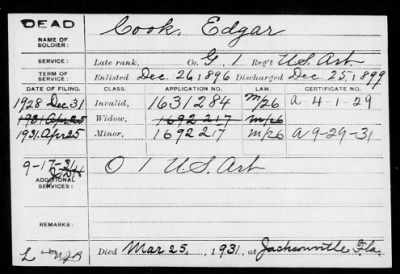 DEAD
NAME OF SOLDIER: Cook, Edgar
SERVICE: Late rank, Co. G, 1 Reg't U.S. Art.
TERM OF SERVICE: Enlisted Dec. 26, 1896 Discharged Dec. 25, 1899
DATE OF FILING. CLASS. APPLICATION NO. LAW. CERTIFICATE NO.
1928 Dec. 31 Invalid, 1631284 M/26 a-4-1-29
1931 Apr 25 Widow, 1692217 M/26
1931 Apr 25 Minor, 1692217 M/26 a 9-29-31
9-17-31 O 1 U.S. Art
ADDITIONAL SERVICES:
REMARKS:
Died Mar 25, 1931, at Jacksonville Fla.